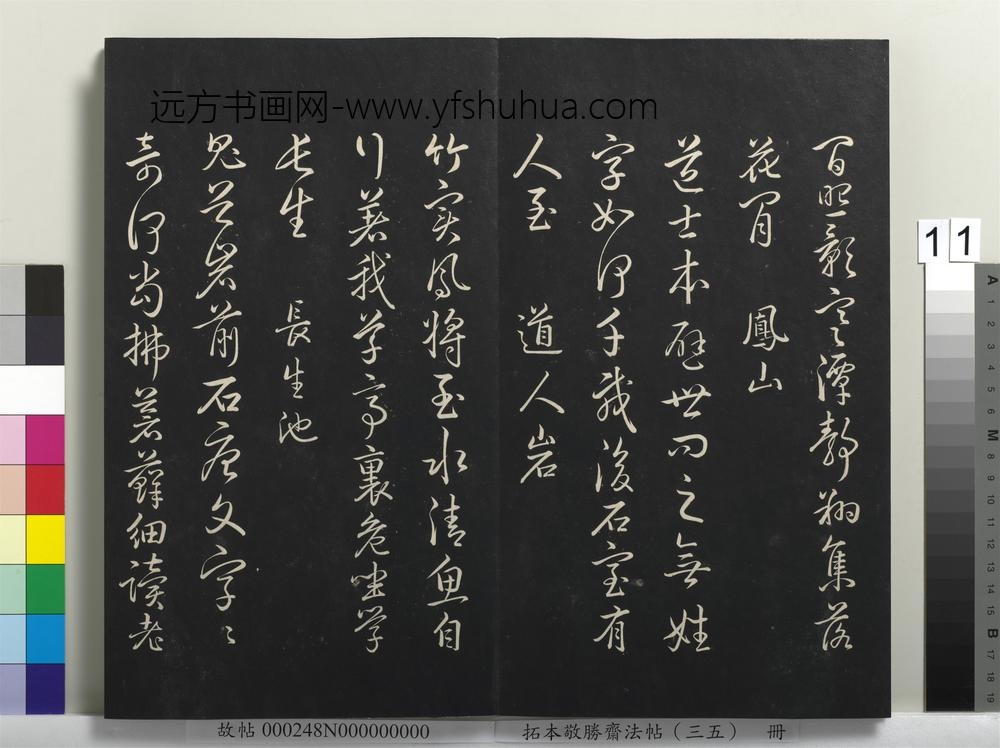 照影寒潭靜翔集落
花間 鳳山
道士本避世問之無姓
字如何千載後石室有
人至 道人岩
竹實鳳將至水清魚自
行著我茅亭裏危坐學
長生 長生池
鬼谷岩前石唐文字〻
奇何當拂蒼蘚細讀老
远方书画网-www.yfshuhua.com
11
故帖 000248N000000000
拓本敬勝齋法帖（三五） 冊
A
1
2
3
4
5
6
M
8
9
10
11
12
13
14
15
B
17
18
19